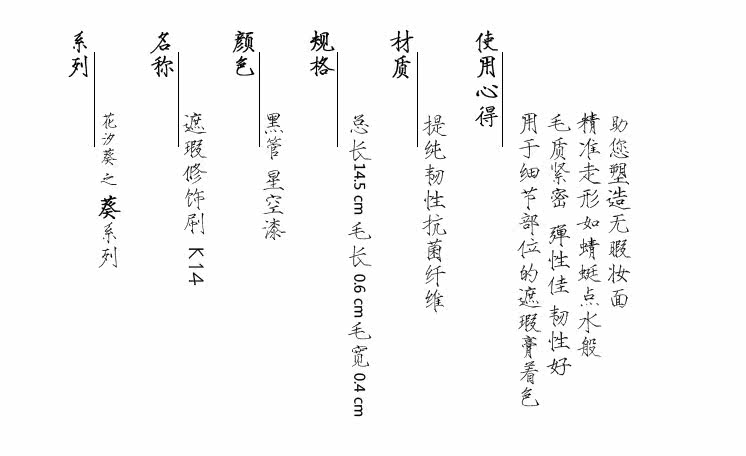 系列
花汐葵之葵系列
名称
遮瑕修饰刷 K14
颜色
黑管 星空漆
规格
总长14.5 cm 毛长 0.6 cm 毛宽 0.4 cm
材质
提纯韧性抗菌纤维
使用心得
用于细节部位的遮瑕膏着色
毛质紧密 弹性佳 韧性好
精准走形如蜻蜓点水般
助您塑造无暇妆面